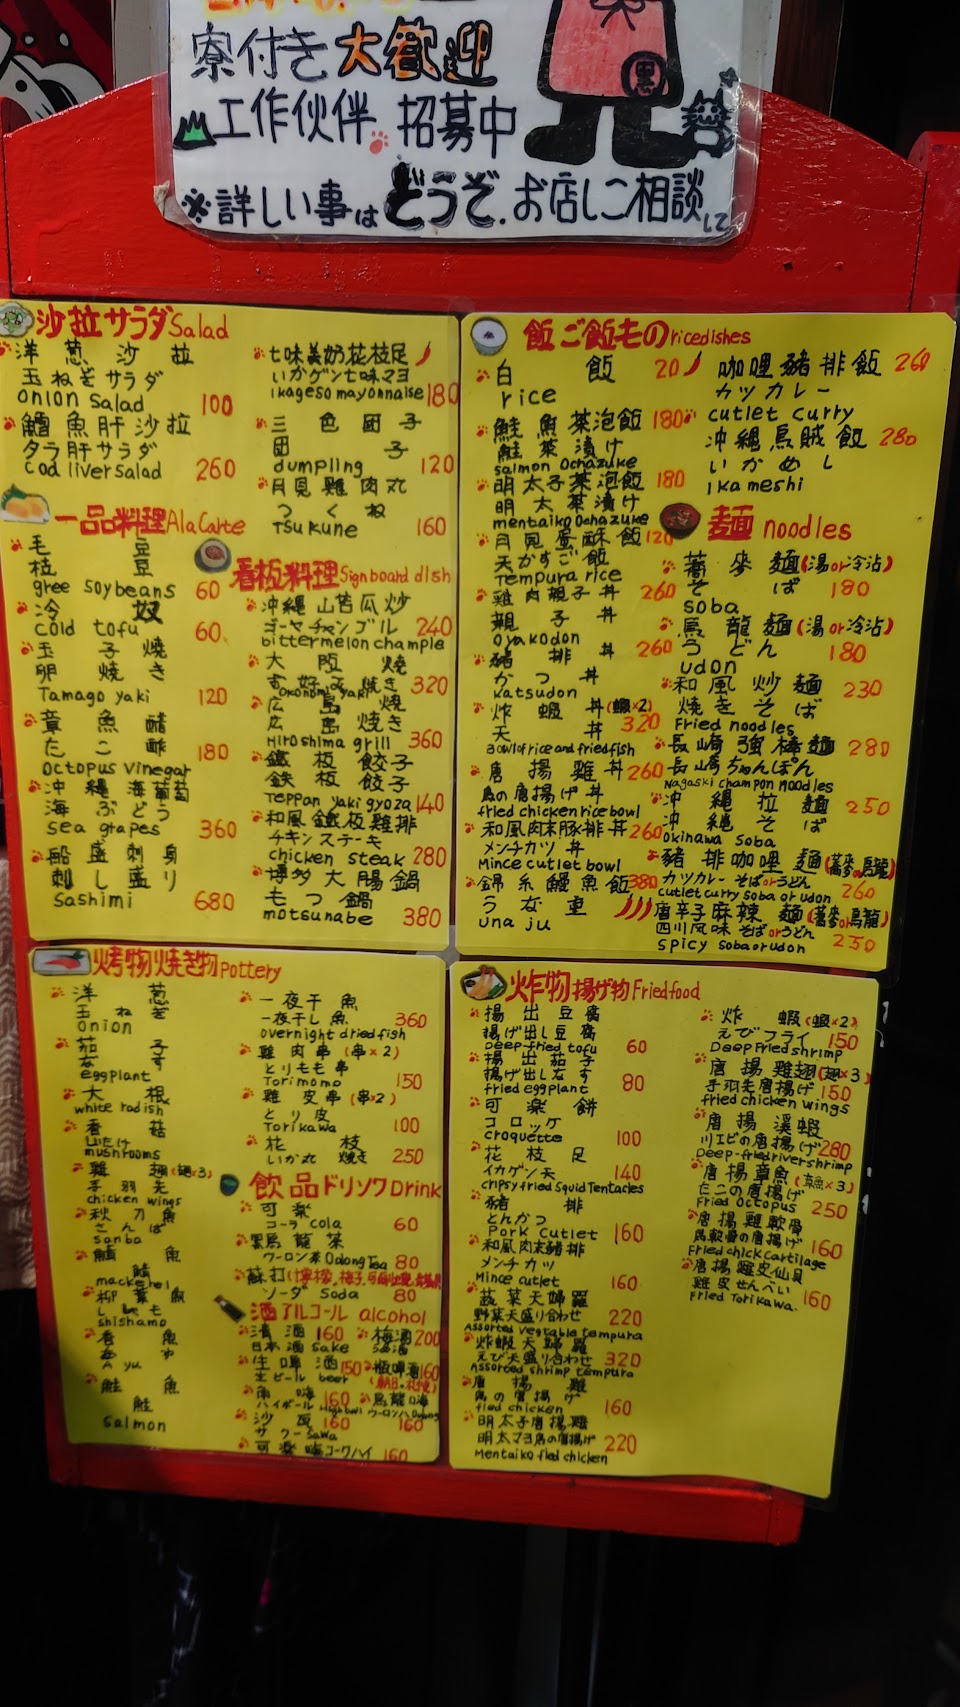 寮付き大歓迎
工作伙伴 招募中
※詳しい事はどうぞ.お店に相談して
沙拉サラダSalad
洋葱沙拉
玉ねぎサラダ
onion salad 100
鱈魚肝沙拉
タラ肝サラダ
Cod liver Salad 260
七味美奶花枝足
いかゲソ七味マヨ
ikageso mayonnaise 180
三色団子
団子
dumpling 120
月見雞肉丸
つくね
Tsukune 160
一品料理 Ala Carte
毛豆
枝豆
gree soybeans 60
冷奴
cold tofu 60
玉子燒
卵焼き
Tamago yaki 120
章魚醋
たこ酢 180
octopus vinegar
沖縄海葡萄
海ぶどう
sea grapes 360
船盛刺身
刺し盛り
Sashimi 680
看板料理 Signboard dish
沖縄山苦瓜炒
ゴーヤチャンプル 240
bittermelon chample
大阪燒
お好み焼き 320
okonomiyaki
広島燒
広島焼き
Hiroshima grill 360
鐵板餃子
鉄板餃子
Teppan yaki gyoza 140
和風鐵板雞排
チキンステーキ
chicken steak 280
博多大腸鍋
もつ鍋
motsunabe 380
飯ご飯もの rice dishes
白飯 20
rice
鮭魚茶泡飯 180
鮭茶漬け
salmon ochazuke
明太子茶泡飯 180
明太茶漬け
mentaiko ochazuke
月見蛋酥飯 120
天かすご飯
Tempura rice
雞肉親子丼 260
親子丼
oyakodon
豬排丼 260
かつ丼
katsudon
炸蝦丼(蝦×2)
天丼 320
Bowl of rice and fried fish
唐揚雞丼 260
鳥の唐揚げ丼
fried chicken rice bowl
和風肉末豚排丼 260
メンチカツ丼
Mince cutlet bowl
錦糸鰻魚飯 380
うな重
una ju
咖哩豬排飯 260
カツカレー
cutlet curry
沖縄烏賊飯 280
いかめし
Ikameshi
麺 noodles
蕎麥麵(湯or冷沾)
そば 180
soba
烏龍麵(湯or冷沾)
うどん 180
udon
和風炒麵 230
焼きそば
Fried noodles
長崎強棒麵 280
長崎ちゃんぽん
Nagaski champon noodles
沖縄拉麵 250
沖縄そば
okinawa soba
豬排咖哩麵(蕎麥or烏龍)
カツカレーそばorうどん
cutlet curry soba or udon 260
唐辛子麻辣麵(蕎麥or烏龍)
四川風味そばorうどん
spicy soba or udon 250
烤物焼き物 pottery
洋葱
玉ねぎ
onion
茄子
なす
eggplant
大根
white radish
香菇
しいたけ
mushrooms
雞翅(翅×3)
手羽先
chicken wings
秋刀魚
さんま
sanba
鯖魚
鯖
mackerel
柳葉魚
ししゃも
shishamo
香魚
あゆ
Ayu
鮭魚
鮭
Salmon
一夜干魚
一夜干し魚 360
overnight dried fish
雞肉串(串×2)
とりもも串
Torimomo 150
雞皮串(串×2)
とり皮
Torikawa 100
花枝
いか丸焼き 250
飲品ドリンク Drink
可樂
コーラ cola 60
黑烏龍茶
ウーロン茶 Oolong Tea 80
蘇打
ソーダ Soda 80
酒アルコール alcohol
清酒 160
日本酒 Sake
梅酒 200
生啤酒 150
生ビール beer
瓶啤酒 160
角嗨 160
ハイボール Highball
烏龍嗨
ウーロンハイ
160
沙瓦 160
サワー Sawa
可樂嗨 コークハイ 160
炸物 揚げ物 Fried food
揚出豆腐
揚げ出し豆腐
Deep-fried tofu 60
揚出茄子
揚げ出しなす
fried eggplant 80
可樂餅
コロッケ
croquette 100
花枝足
イカゲソ天 140
cripsy fried squid Tentacles
豬排
とんかつ
Pork cutlet 160
和風肉末豬排
メンチカツ
Mince cutlet 160
蔬菜天婦羅
野菜天盛り合わせ 220
Assorted vegetable tempura
炸蝦天婦羅
えび天盛り合わせ 320
Assorted shrimp tempura
唐揚雞
鳥の唐揚げ
fied chicken 160
明太子唐揚雞
明太マヨ鳥の唐揚げ 220
Mentaiko fied chicken
炸蝦(蝦×2)
えびフライ 150
Deep Fried shrimp
唐揚雞翅(翅×3)
手羽先唐揚げ 150
fried chicken wings
唐揚溪蝦
川エビの唐揚げ 280
Deep-fried river shrimp
唐揚章魚
たこの唐揚げ
Fried octopus 250
唐揚雞軟骨
鳥軟骨の唐揚げ 160
Fried chick cartilage
唐揚雞皮仙貝
雞皮せんべい 160
Fried Torikawa